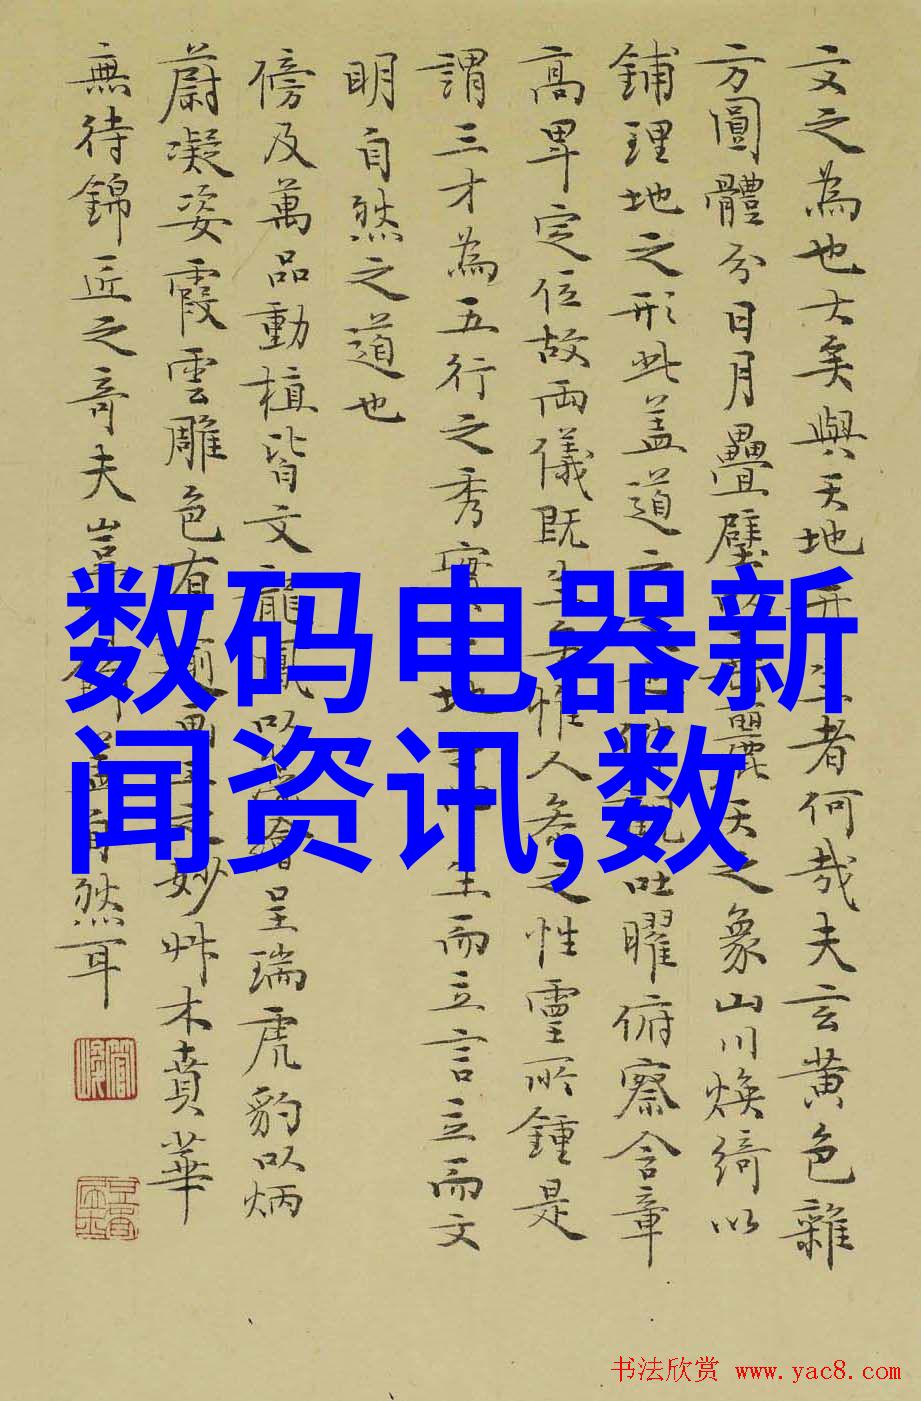 文之為也大矣與天地并生者何哉夫玄黄色雜
方圓體分日月疊璧以垂麗天之象山川煥綺以
鋪理地之形此盖道之觀吐曜俯察含章
高卑定位故兩儀既生惟人參之性靈所鍾是
謂三才為五行之秀實地生而立言立而文
明自然之道也
傍及萬品動植皆文龍鳳以藻繪呈瑞虎豹以炳
蔚凝姿霞雲雕色有逾畫工之妙艸木賁華
無待錦匠之奇夫豈飾盖自然耳
数码电器新
闻资讯,数
书法欣赏 www.yac8.com